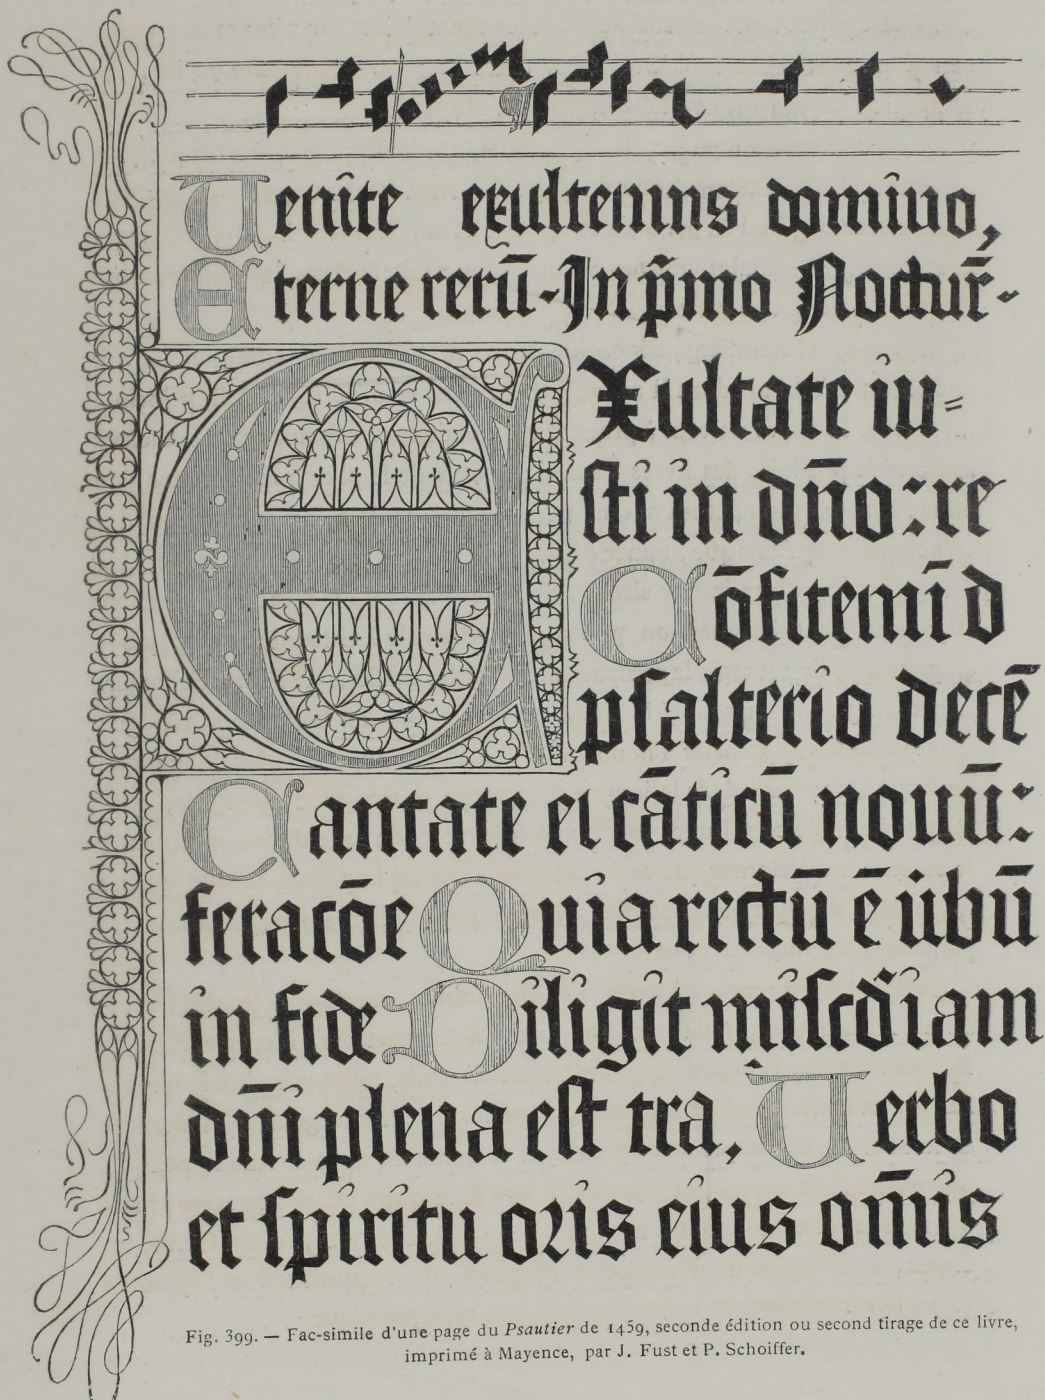 Venite exultemns domino,
Eterne rerū. In p̄mo Nocturn̄.
EXultate iu=
sti in dn̄o: re
Cōfitemī d
psalterio decē
Cantate ei cāticū nouū:
feracōe Quia rectū ē ūbū
in fide Diligit misc̄diam
dn̄i plena est tra, Verbo
et spiritu oris eius om̄is
Fig. 399. — Fac-simile d'une page du Psautier de 1459, seconde édition ou second tirage de ce livre,
imprimé à Mayence, par J. Fust et P. Schoiffer.